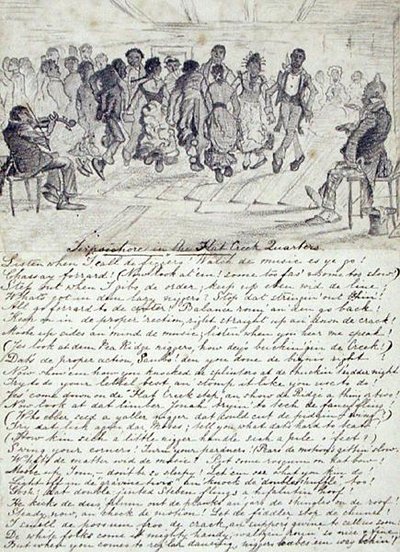 Terpsichore in the Flat Creek Quarters
Listen when I call de figgers! Watch de music es ye go!
Chassay forrard! (Now look at 'em! some too fas' & some too slow)
Step out when I gibs de order; keep up eben wid de line;
What's got in dem lazy niggers? Stop dat stringin' out behin'!
All go forrard to de center! Balance roun' an den go back!
Keep on in de proper action, right straight up an' down de crack!
Moobe up sides an mind de music, listen when you hear me speak!
(Jes look at dem Pea Ridge niggers, how dey's in de Creek!)
Dat's de proper action Sambo! den you done de biznis right!
Now show 'em how you knocked de splinters at de shuckin' todder night
Try to do your lebbel best, an' stomp it like you use to do!
Jes come down on de "Flat Creek step" an show de Ridge a thing or two!
Now look at dat limber Jonah tryin' to tech de fancy fling!
(Who ebber seed a yaller nigger dat could cut de pidgin wing?)
Try dat lick agin dar, Moses; tell you what dat's hard to beat!
(How kin sech a little nigger handle sech a pile o' feet?)
Swing your corners! Turn your pardners! ('Pears de motion's gettin slow.
What's de matter wid de music? Put some rosgum on dat bow!)
Moobe up, Tom — don't be sleepy! Let 'em see what you kin do
Light off in de "gravine-twis'" an' knock de "double-shuffle" too!
Gosh! dat double-jinted Steben flings a hifalutin hoof!
He kicks de dus' plum out de planks an' jars de shingles on de roof!
Steady, now, an' check de motion! Let de fiddler stop de chune!
I smell de possum froo de crack, an supper's gwine to call us soon!
De white folks come it mighty handy, waltzin' roun' so nice & fine
But when you comes to reg'lar dancin', niggers leabes 'em way behin'!